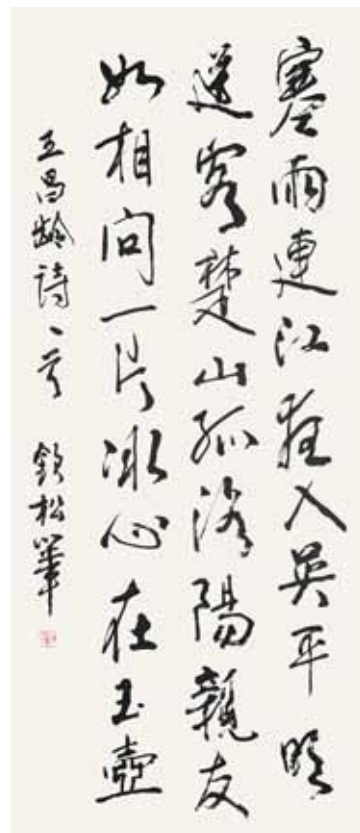 寒雨連江夜入吳平明
送客楚山孤洛陽親友
如相問一片冰心在玉壺
王昌齡詩一首 欽松筆